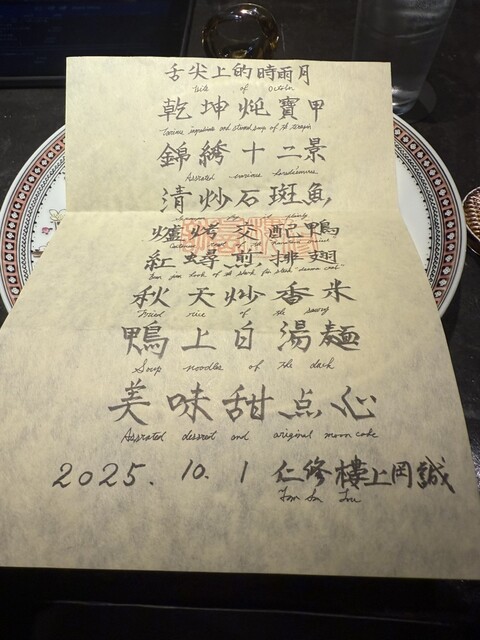 舌尖上的時雨月
Taste of October
乾坤炖寶甲
Various ingredients and steamed soup of the terapin
錦綉十二景
Assorted various
清炒石斑魚
爐烤交配鴨
紅蟳煎排翅
秋天炒香米
Fried rice of the savory
鴨上白湯麺
Soup noodles of the duck
美味甜点心
Assorted dessert and original moon cake
2025. 10. 1 仁修樓上岡誠